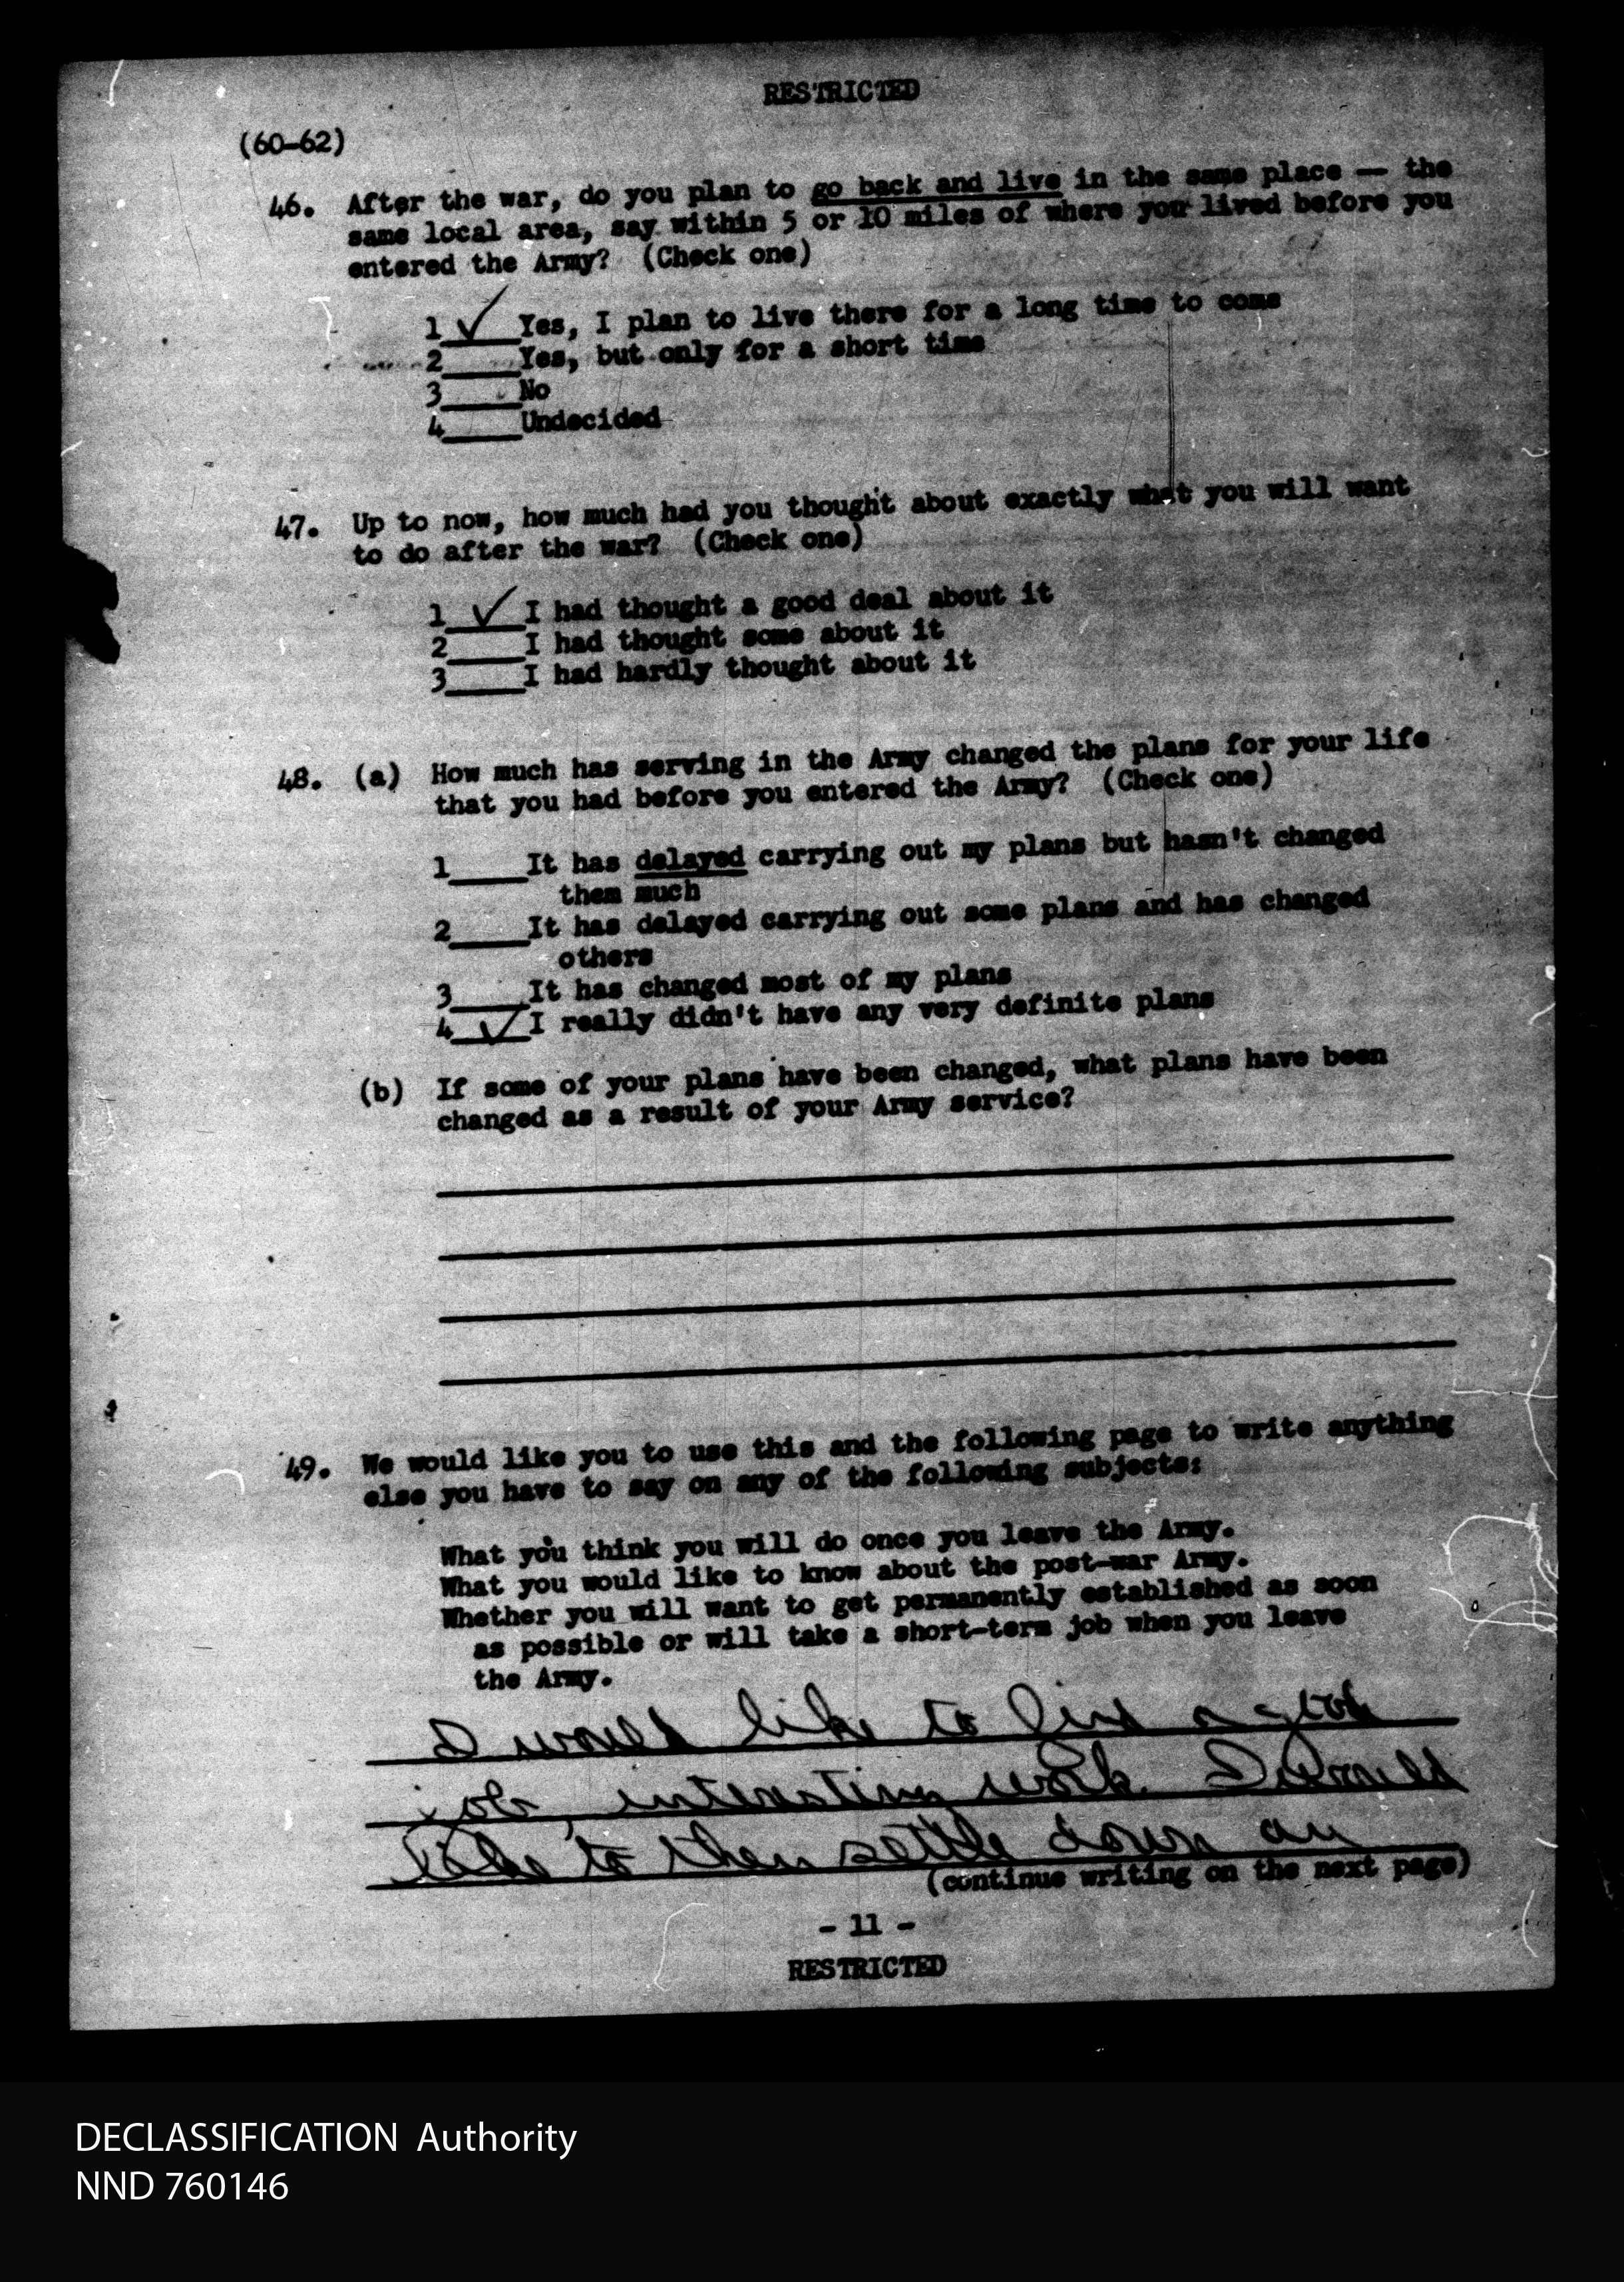 RESTRICTED
(60-62)
46. After the war, do you plan to go back and live in the same place — the
same local area, say within 5 or 10 miles of where you lived before you
entered the Army? (Check one)
1 ✓ Yes, I plan to live there for a long time to come
2____Yes, but only for a short time
3____No
4____Undecided
47. Up to now, how much had you thought about exactly what you will want
to do after the war? (Check one)
1 ✓ I had thought a good deal about it
2____I had thought some about it
3____I had hardly thought about it
48. (a) How much has serving in the Army changed the plans for your life
that you had before you entered the Army? (Check one)
1____It has delayed carrying out my plans but hasn't changed
them much
2____It has delayed carrying out some plans and has changed
others
3____It has changed most of my plans
4 ✓ I really didn't have any very definite plans
(b) If some of your plans have been changed, what plans have been
changed as a result of your Army service?
49. We would like you to use this and the following page to write anything
else you have to say on any of the following subjects:
What you think you will do once you leave the Army.
What you would like to know about the post-war Army.
Whether you will want to get permanently established as soon
as possible or will take a short-term job when you leave
the Army.
I would like to find a good
job, interesting work. I would
like to then settle down an
(continue writing on the next page)
- 11 -
RESTRICTED
DECLASSIFICATION Authority
NND 760146